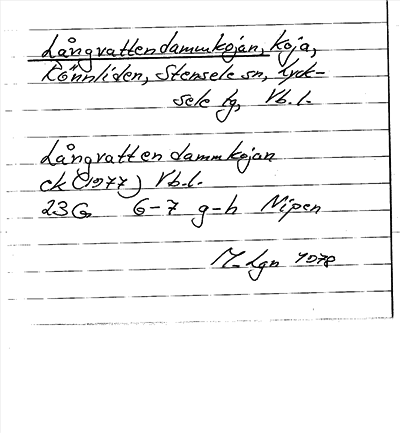 Långvattendammkojan, koja,
Rönnliden, Stensele sn, Lyck-
sele lg, Vb.l.
Långvattendammkojan
ek (1977) Vb.l.
23G 6-7 g-h Nipen
M. Lgn 1978